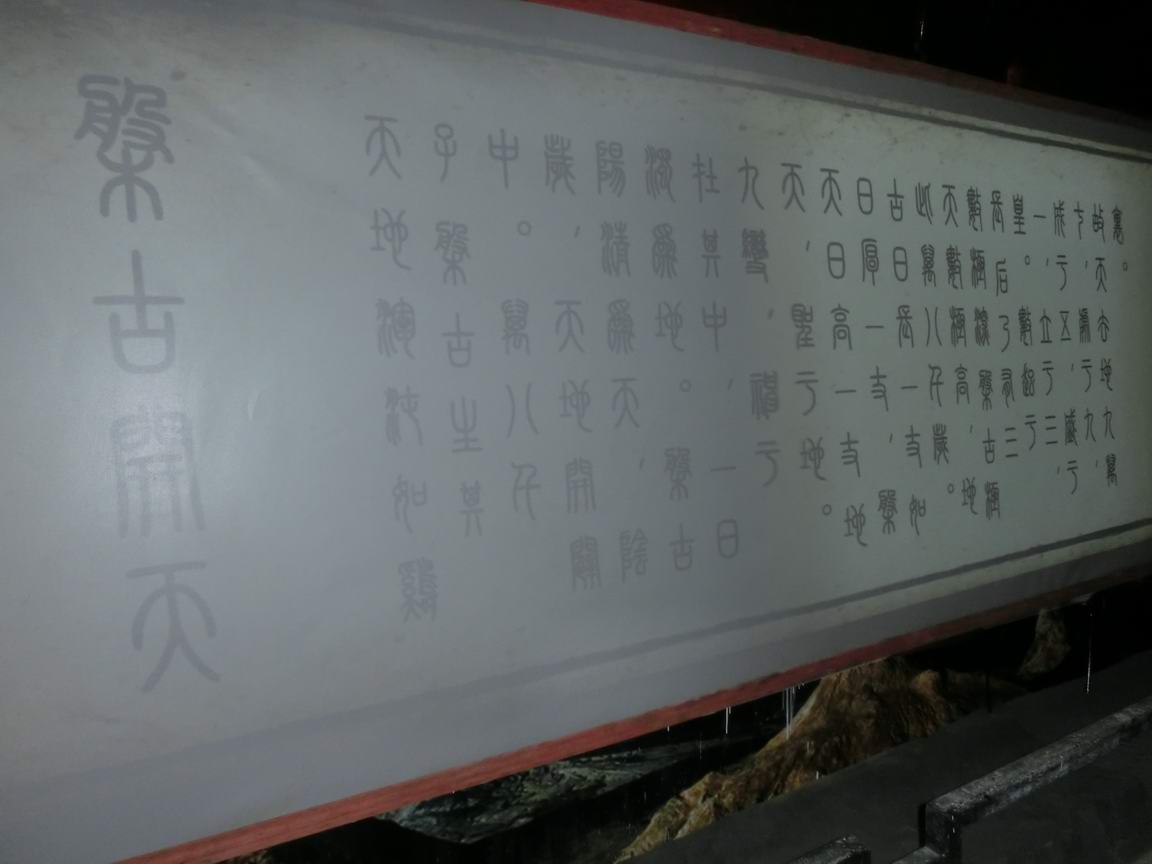 槃古開天
天地渾沌如鷄
子槃古生其
中。萬八千
歲,天地開闢
陽清爲天,陰
濁爲地。槃古
在其中,一日
九變,神于
天,聖于地。
天日高一丈地
日厚一丈,槃
古日長一丈如
此萬八千歲。
天數極高,地
數極深槃古極
長后乃有三
皇。數起于
一,立于三,
成于五盛于
七,處于九,
故天去地九萬
裏。